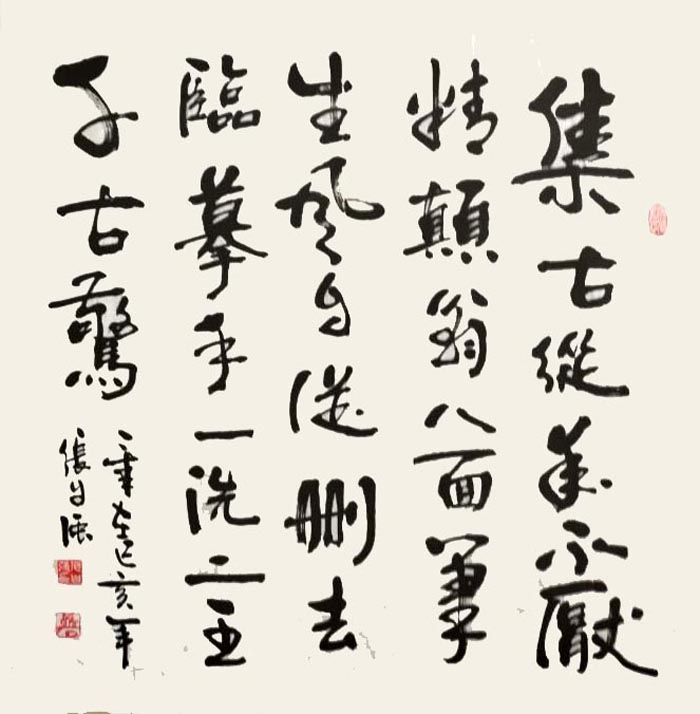 集古從來不厭
精顛翁八面筆
生風自從刪去
臨摹手一洗二王
千古驚
己亥年
張自強